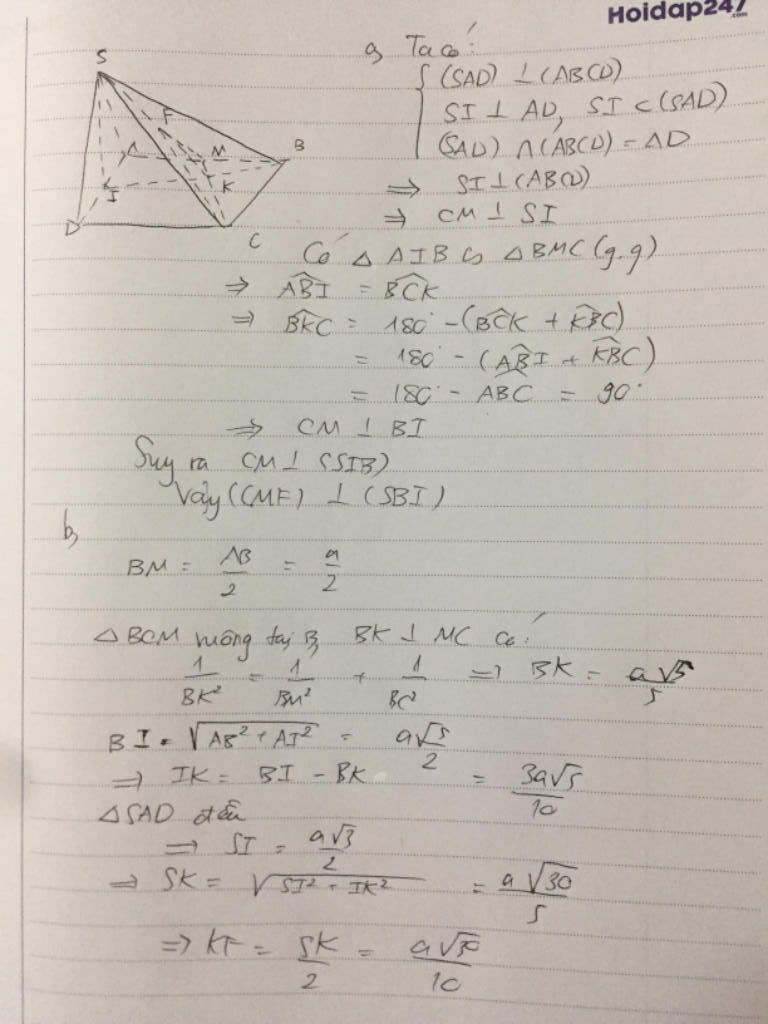 Hoidap247.com
S
F
A
M
B
I
K
D
C
a, Ta có:
(SAD) ⊥ (ABCD)
SI ⊥ AD, SI ⊂ (SAD)
(SAD) ∩ (ABCD) = AD
⇒ SI ⊥ (ABCD)
⇒ CM ⊥ SI
Có △ AIB ∽ △ BMC (g.g)
⇒ ABI = BCK
⇒ BKC = 180° - (BCK + KBC)
= 180° - (ABI + KBC)
= 180° - ABC = 90°
⇒ CM ⊥ BI
Suy ra CM ⊥ (SIB)
Vậy (CMF) ⊥ (SBI)
b,
BM = AB/2 = a/2
△ BCM vuông tại B, BK ⊥ MC có:
1/BK² = 1/BM² + 1/BC² ⇒ BK = a√5/5
BI = √(AB² + AI²) = a√5/2
⇒ IK = BI - BK = 3a√5/10
△ SAD đều
⇒ SI = a√3/2
⇒ SK = √(SI² + IK²) = a√30/5
⇒ KF = SK/2 = a√30/10